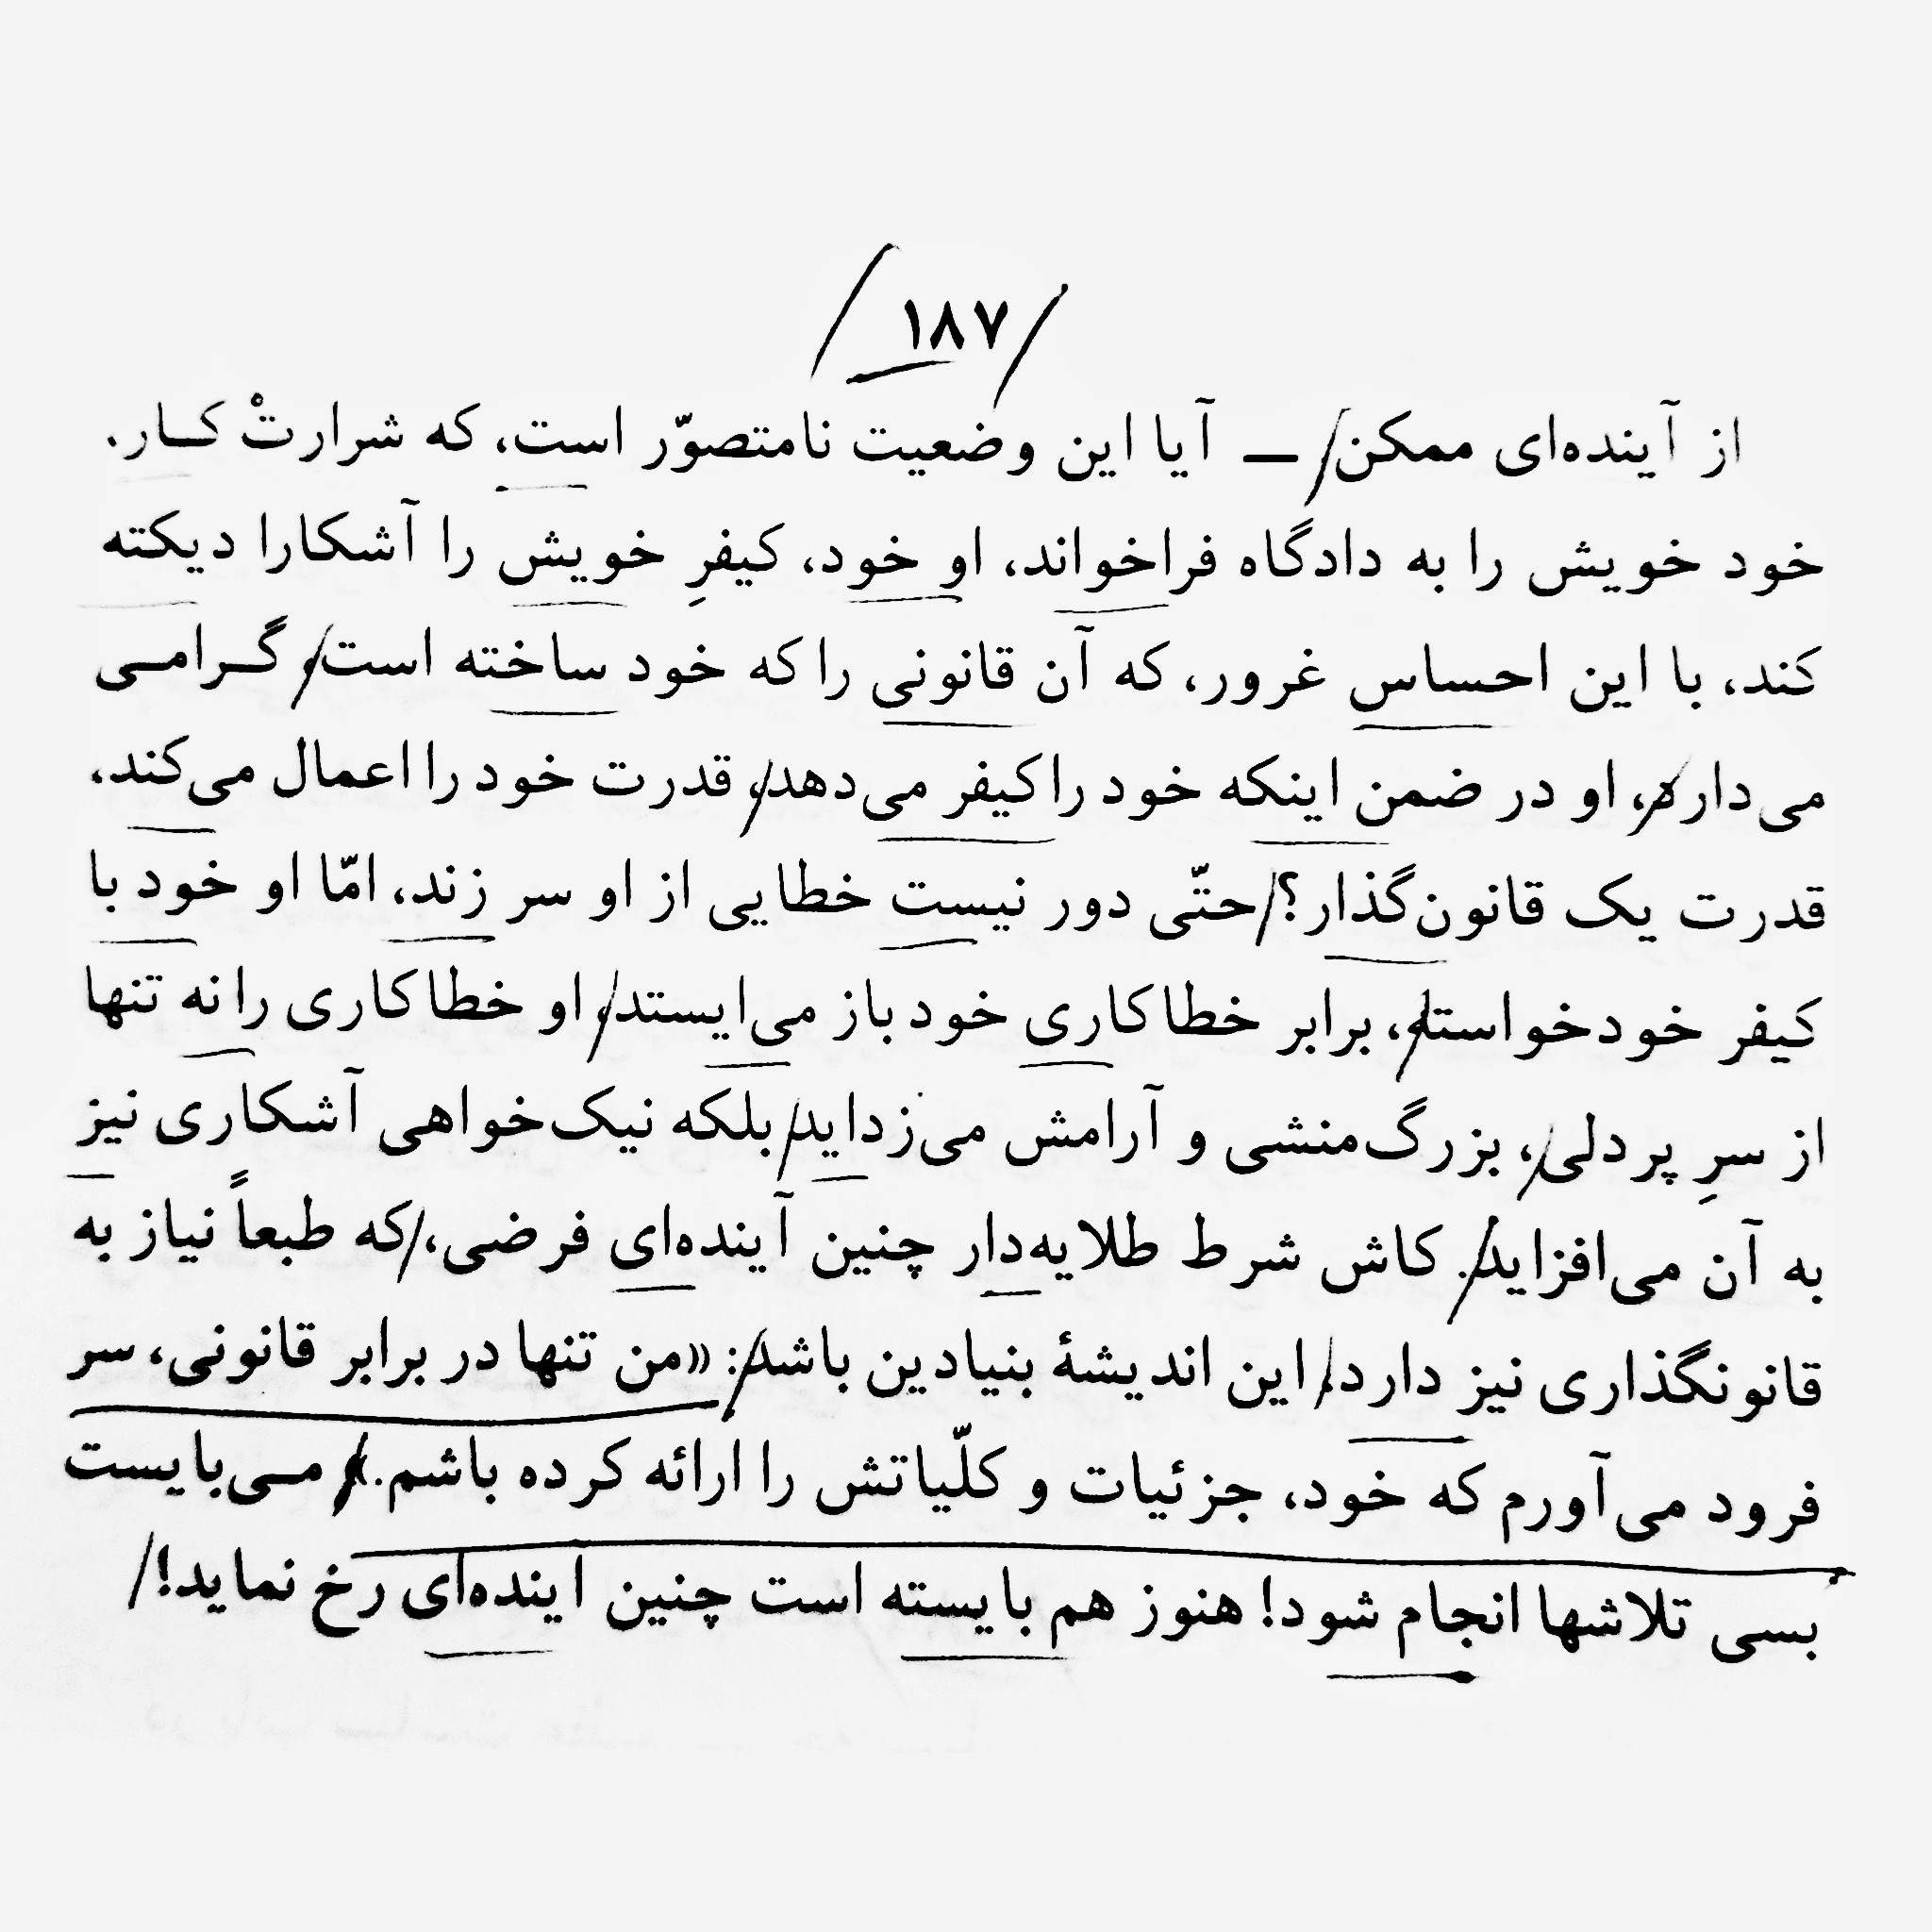 ۱۸۷
از آینده‌ای ممکن ـــ آیا این وضعیت نامتصوّر است، که شرارتْ کـار،
خود خویش را به دادگاه فراخواند، او خود، کیفرِ خویش را آشکارا دیکته
کند، با این احساس غرور، که آن قانونی را که خود ساخته است، گـرامـی
می‌دارد، او در ضمن اینکه خود را کیفر می‌دهد، قدرت خود را اعمال می‌کند،
قدرت یک قانون‌گذار؟ حتّی دور نیست خطایی از او سر زند، امّا او خود با
کیفر خودخواسته، برابر خطاکاری خود باز می‌ایستد، او خطاکاری را نه تنها
از سرِ پردلی، بزرگ‌منشی و آرامش می‌زداید، بلکه نیک‌خواهی آشکاری نیز
به آن می‌افزاید. کاش شرط طلایه‌دار چنین آینده‌ای فرضی، که طبعاً نیاز به
قانونگذاری نیز دارد، این اندیشهٔ بنیادین باشد: «من تنها در برابر قانونی، سر
فرود می‌آورم که خود، جزئیات و کلّیاتش را ارائه کرده باشم.» مـی‌بایست
بسی تلاشها انجام شود! هنوز هم بایسته است چنین آینده‌ای رخ نماید!